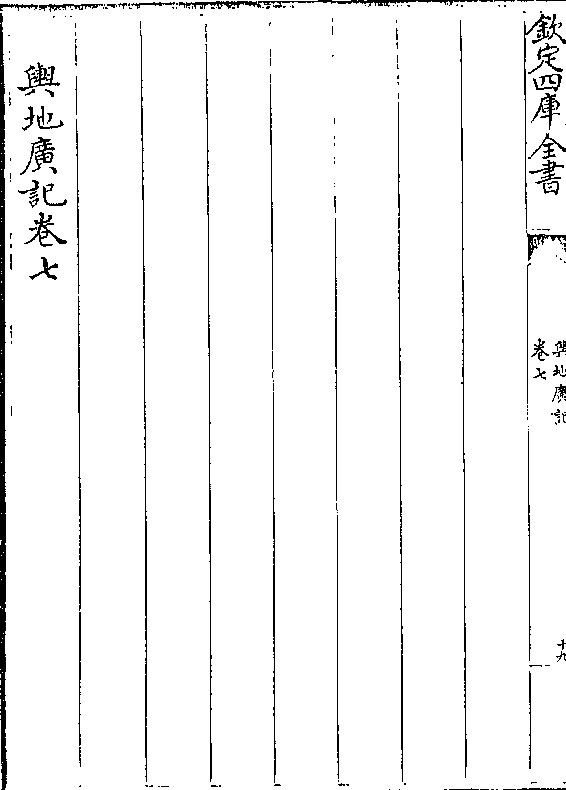 欽定四庫全書
輿地廣記
卷七
十九
輿地廣記卷七